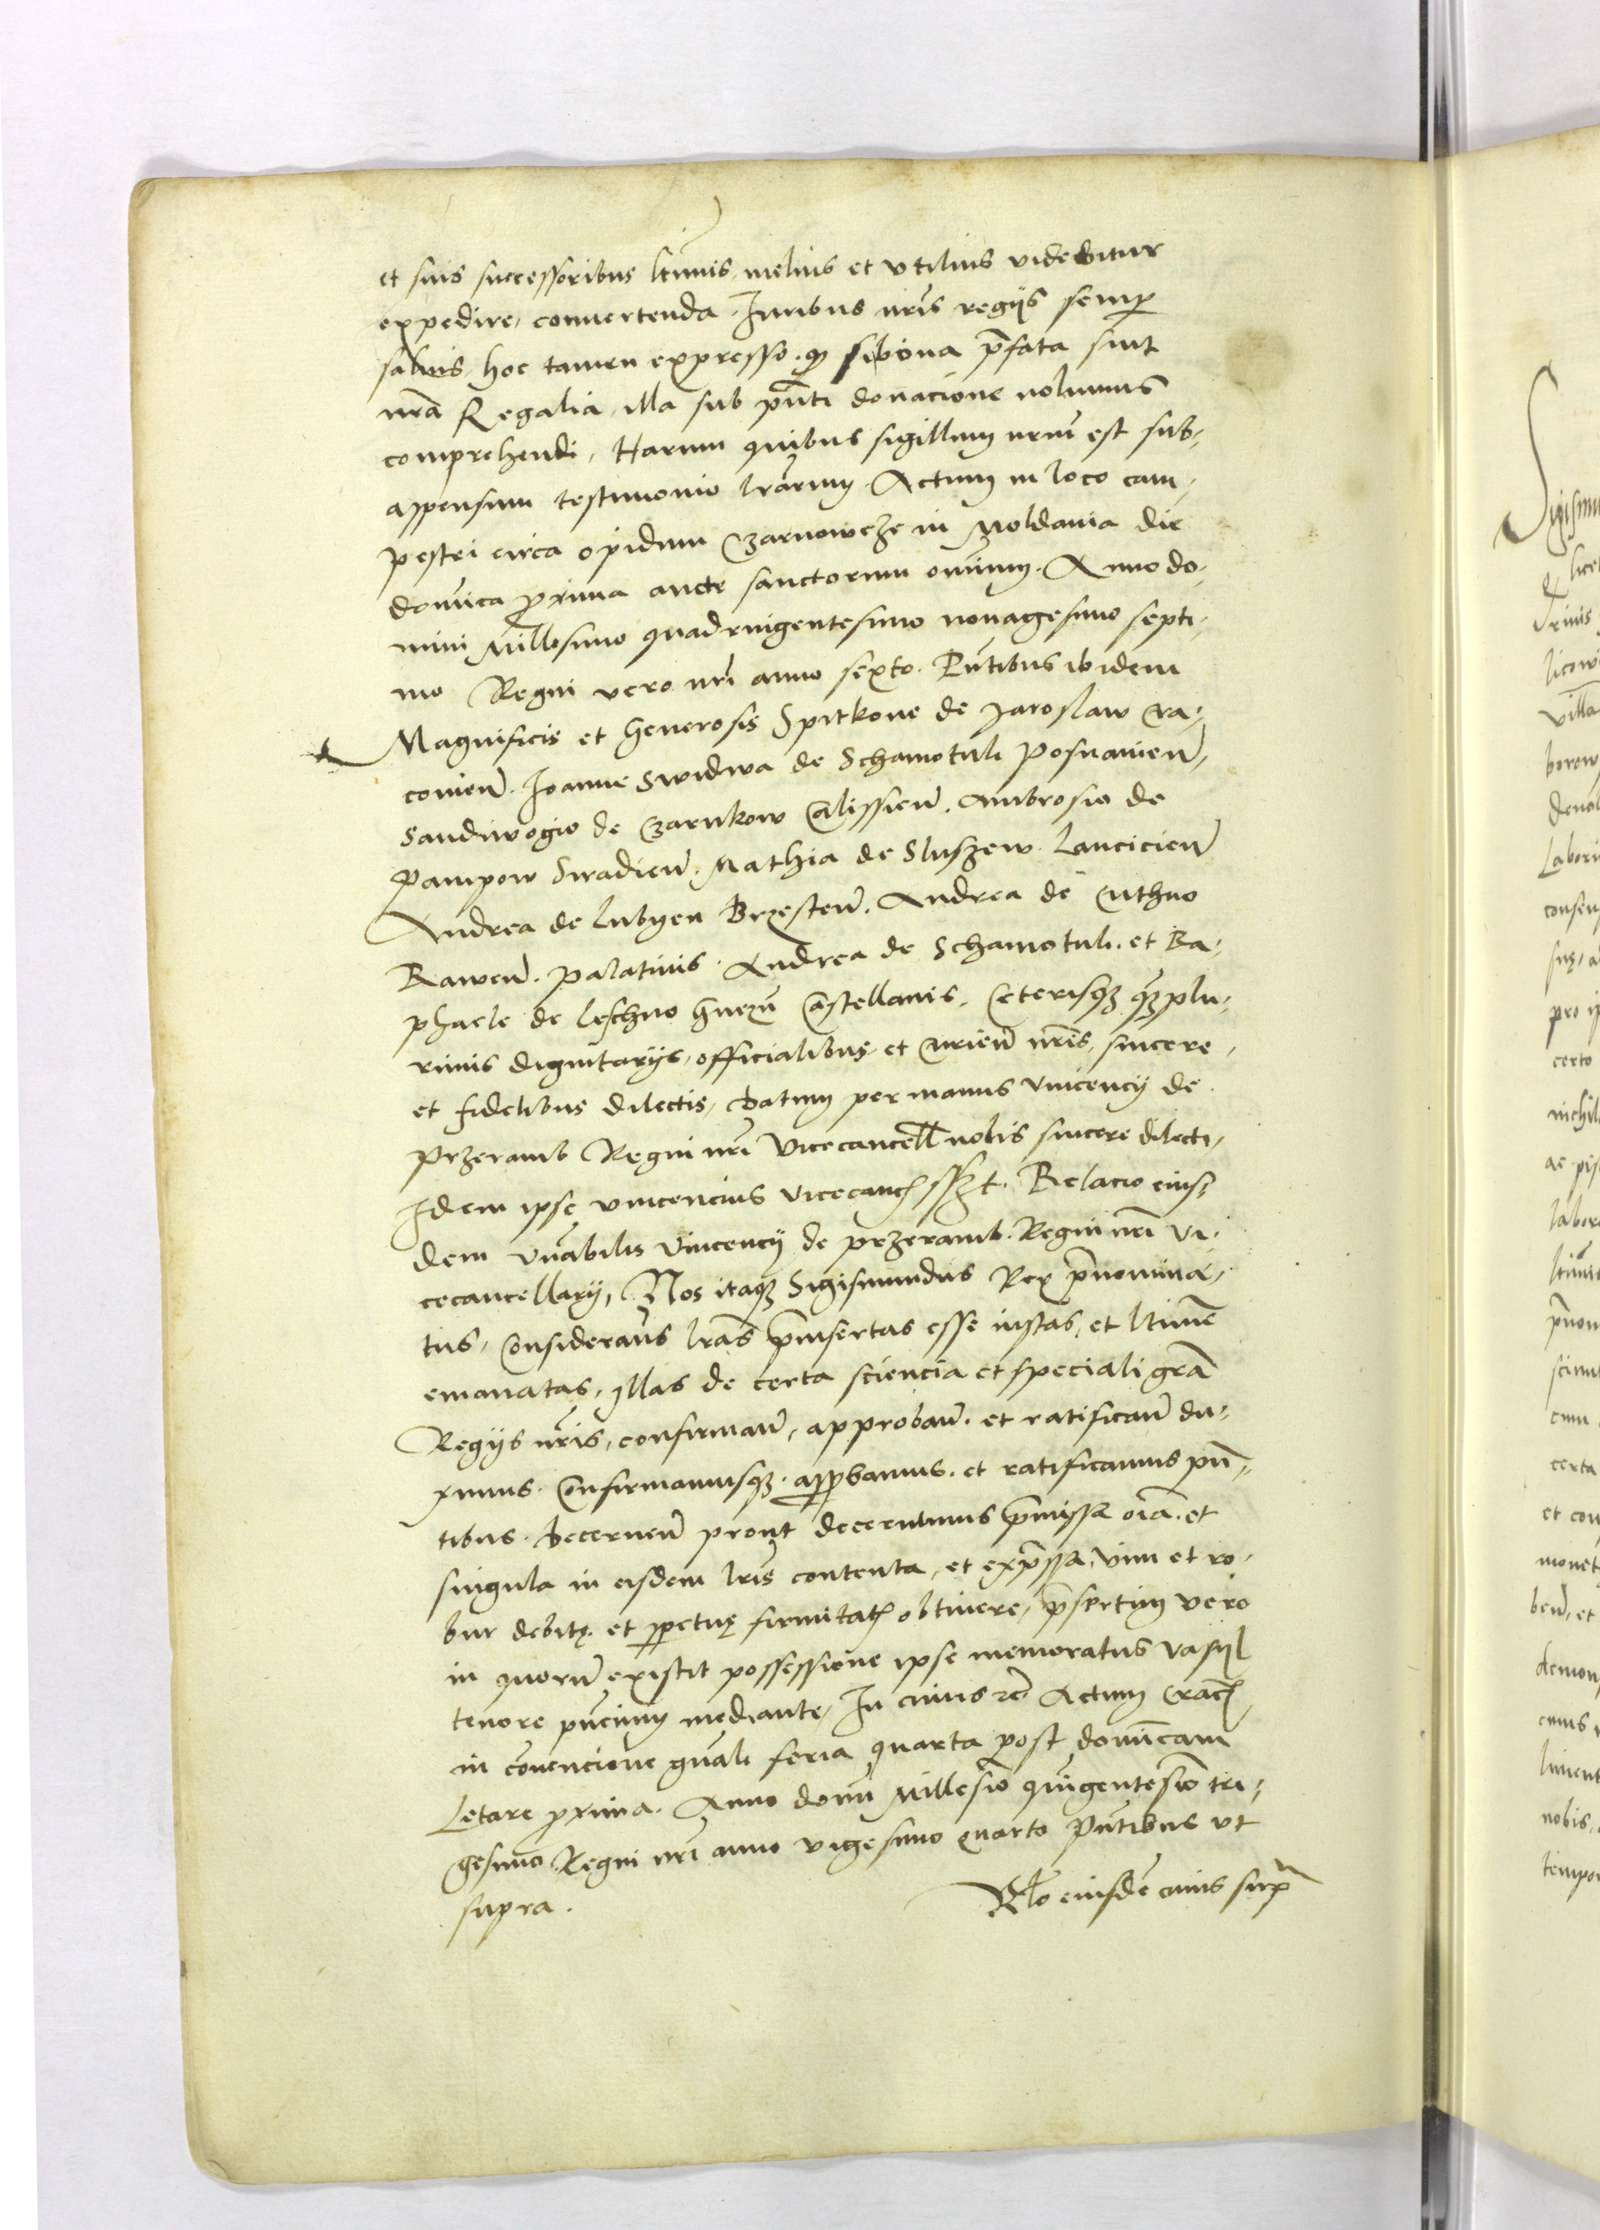 et suis successoribus ltimis melius et vtilius videbitur
expedire, conuertenda. Juribus nris regijs semp
saluis, hoc tamen expresso. q si bona pfata sunt
nra Regalia, illa sub pnti donacione nolumus
comprehendi, Harum quibus sigillum nrum est sub-
appensum testimonio lrarum. Actum in loco cam-
pestri circa opidum Czarnowcze in Moldauia die
domica proxima ante sanctorum omnium. Anno do-
mini Millesimo quadringentesimo nonagesimo septi-
mo Regni vero nri anno sexto. Pntibus ibidem
Magnificis et Generosis Spitkone de Jaroslaw Cra-
couien. Joanne Swidwa de Schamotuli Posnanien,
Sandiwogio de Czarnkow Calissien. Ambrosio de
Pampow Siradien. Mathia de Sluszew Lancicien
Andrea de Lubyen Brzesten. Andrea de Cuthno
Rawen. Palatinis. Andrea de Schamotuli. et Ra-
phaele de Leschno Gnezn Castellanis. Ceterisq qplu-
rimis dignitarijs, officialibus et curien nris, sincere
et fidelibus dilectis, Datum per manus Vincencij de
Przeramb Regni nri Vicecancell nobis sincere dilecti,
Idem ipse Vincencius vicecanc sszt. Relacio eius-
dem vnabilis Vincencij de Przeramb. Regni nri vi-
cecancellarij, Nos itaq Sigismundus Rex pnomina-
tus, Considerans lras pinsertas esse iustas, et ltime
emanatas, Illas de certa sciencia et speciali gra
Regijs nris, confirman, approban. et ratifican du-
ximus. Confirmamusq. approbamus. et ratificamus pn-
tibus. Decernen prout decernimus pmissa oia. et
singula in eisdem lris contenta, et expssa, vim et ro-
bur debite. et ppetue firmitatis obtinere, psertim vero
in quorum existit possessione ipse memoratus Vasyl
tenore pncium mediante, In cuius rei Actum Crac
in Conuencione gnali feria quarta post dominicam
Letare proxima. Anno domi Millesimo quingentesimo tri-
gesimo Regni nri anno vigesimo quarto Pntibus vt
supra.
Rlo eiusde cuius supra